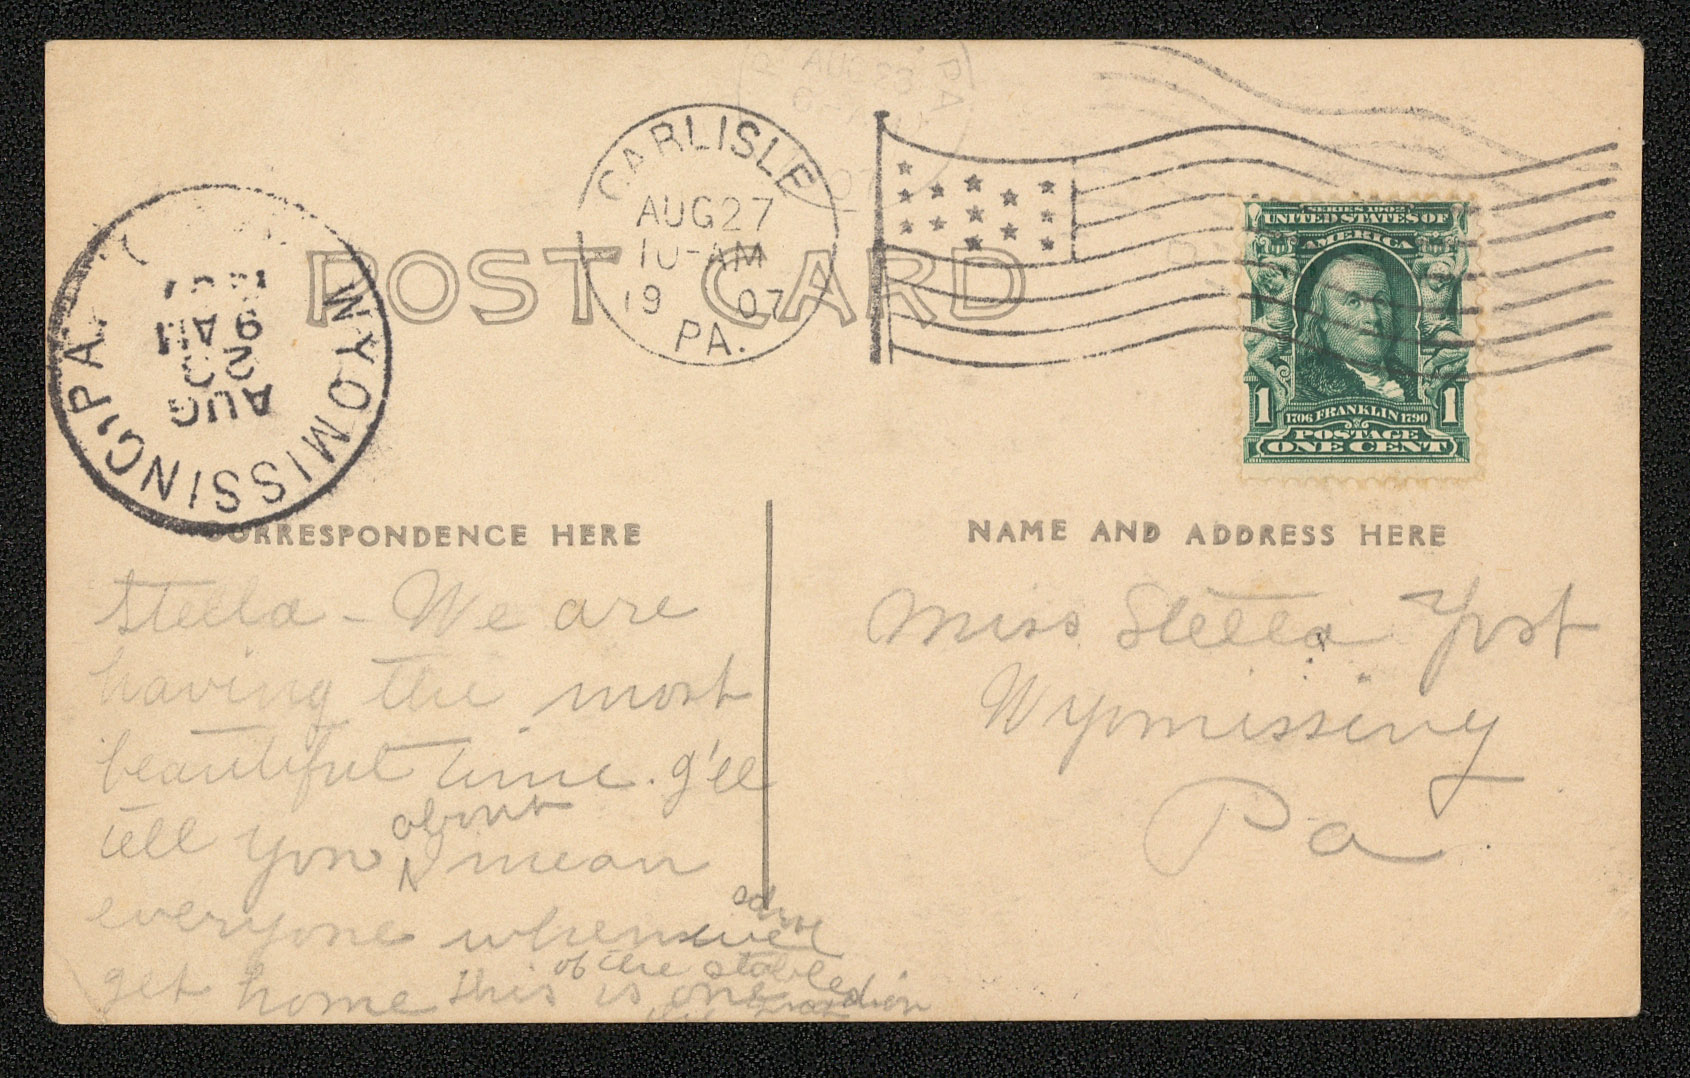 CARLISLE
AUG 27
10-AM
1907
PA.
AUG 23
PA
SERIES 1902
UNITED STATES OF
AMERICA
1 1706 FRANKLIN 1790 1
POSTAGE
ONE CENT
WYOMISSING, PA.
AUG
2
9 AM
POST CARD
CORRESPONDENCE HERE
Stella - We are
having the most
beautiful time. I'll
tell you about mean
everyone when we
get home this is one
of the stable
NAME AND ADDRESS HERE
Miss Stella Yost
Wyomissing
Pa